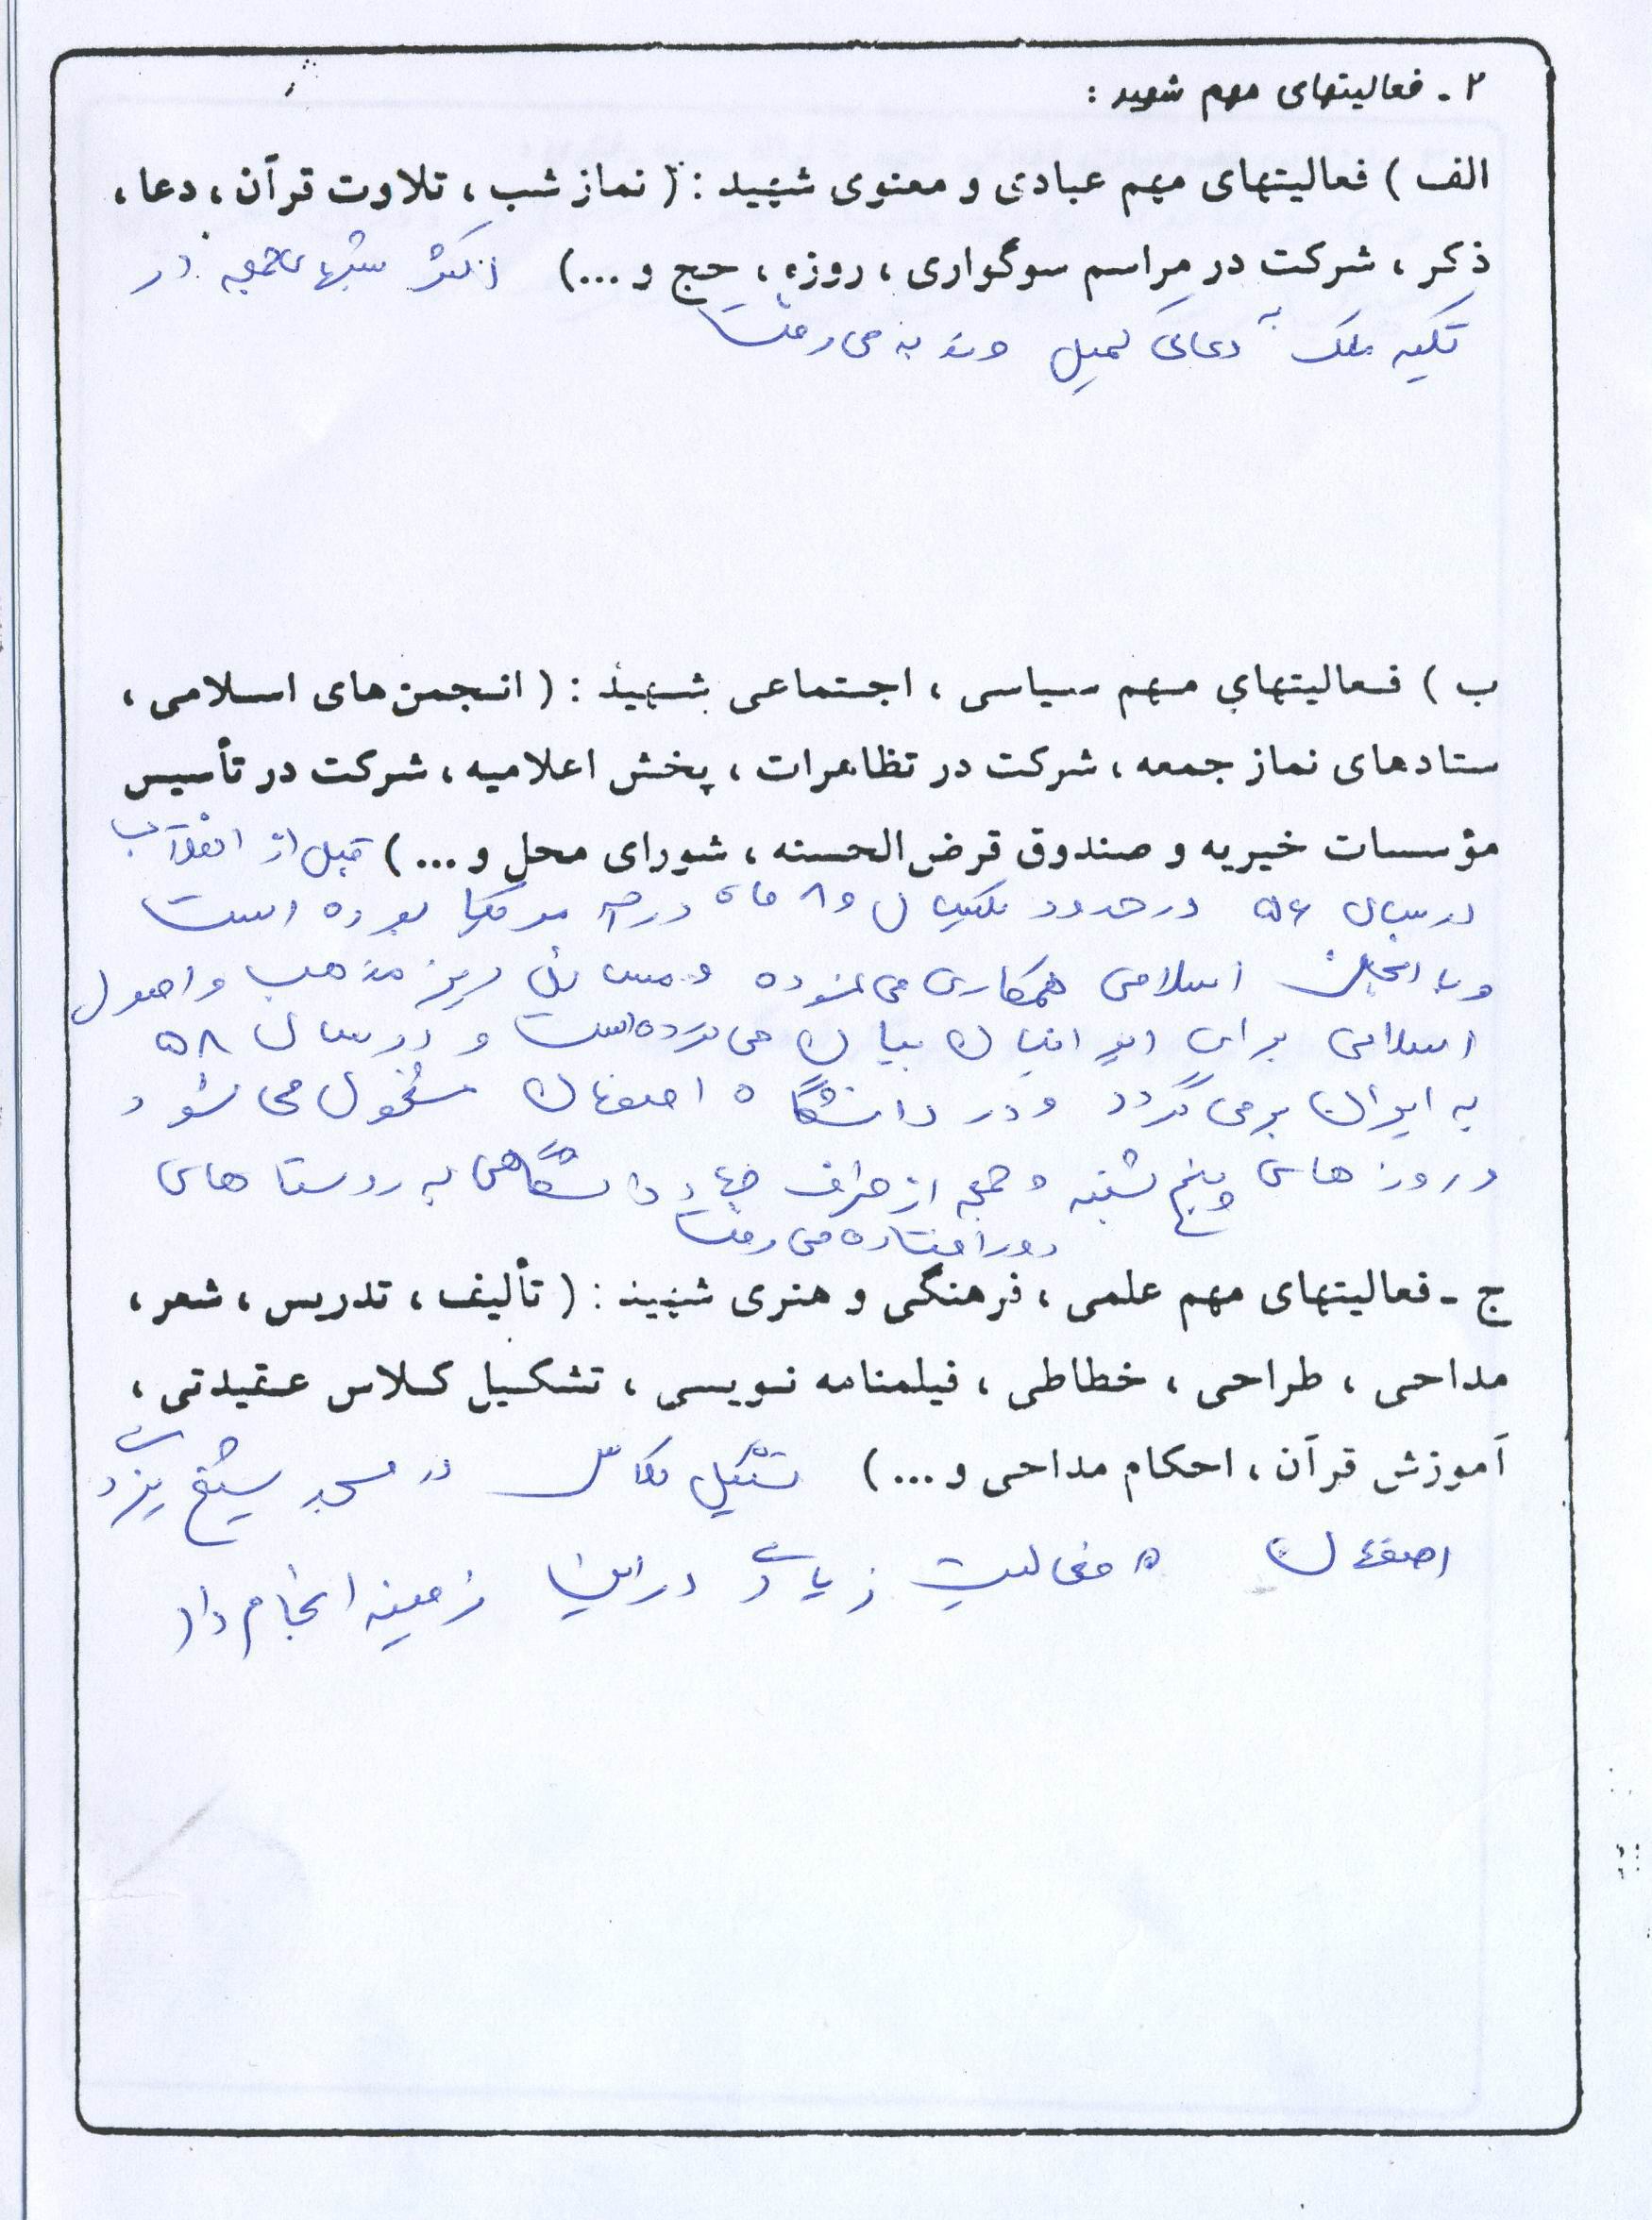 ۲ - فعالیتهای مهم شهید :
الف ) فعالیتهای مهم عبادی و معنوی شهید : ( نماز شب ، تلاوت قرآن ، دعا ،
ذکر ، شرکت در مراسم سوگواری ، روزه ، حج و ...) اکثر شبهای جمعه در
تکیه ملک به دعای کمیل و ندبه می رفت
ب ) فعالیتهای مهم سیاسی ، اجتماعی شهید : ( انجمن های اسلامی ،
ستادهای نماز جمعه ، شرکت در تظاهرات ، پخش اعلامیه ، شرکت در تأسیس
مؤسسات خیریه و صندوق قرض الحسنه ، شورای محل و ... ) قبل از انقلاب
در سال ۵۶ در حدود یکسال و ۸ ماه در آمریکا بوده است
و با انجمن اسلامی همکاری می نموده و مسائل ریز مذهب و اصول
اسلامی برای ایرانیان بیان می کرده است و در سال ۵۸
به ایران برمی گردد و در دانشگاه اصفهان مشغول می شود
در روزهای پنج شنبه و جمعه از طرف جهاد دانشگاهی به روستاهای
دور افتاده می رفت
ج - فعالیتهای مهم علمی ، فرهنگی و هنری شهید : ( تألیف ، تدریس ، شعر ،
مداحی ، طراحی ، خطاطی ، فیلمنامه نویسی ، تشکیل کلاس عقیدتی ،
آموزش قرآن ، احکام مداحی و ... ) تشکیل کلاس در مسجد شیخ یزدی
اصفهان فعالیت زیادی در این زمینه انجام داد